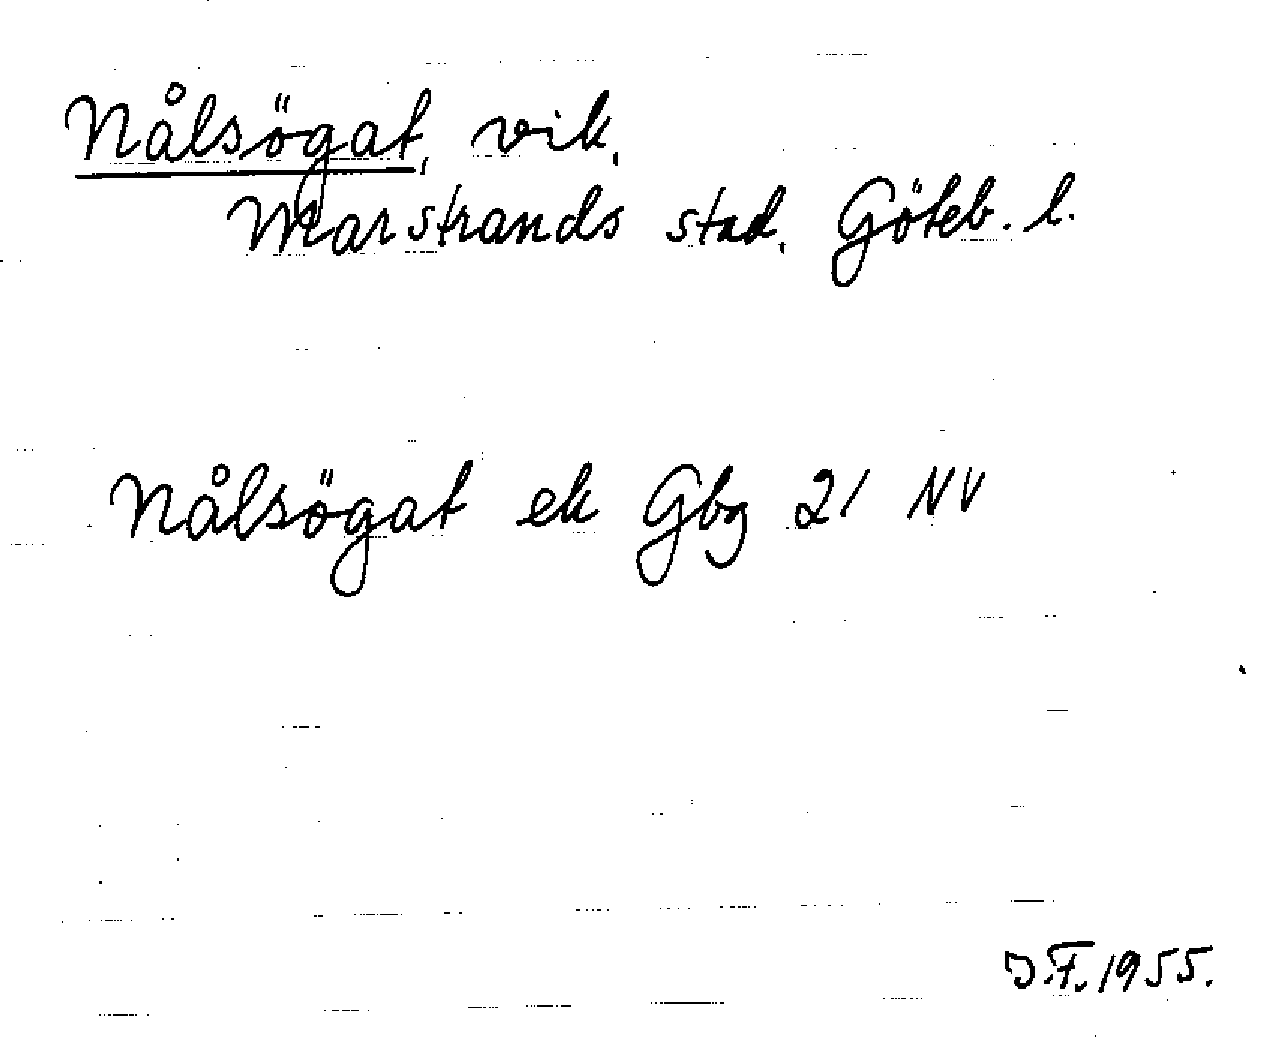 Nålsögat, vik,
Marstrands stad, Göteb. l.
Nålsögat ek Gbg 21 NV
J.F. 1955.